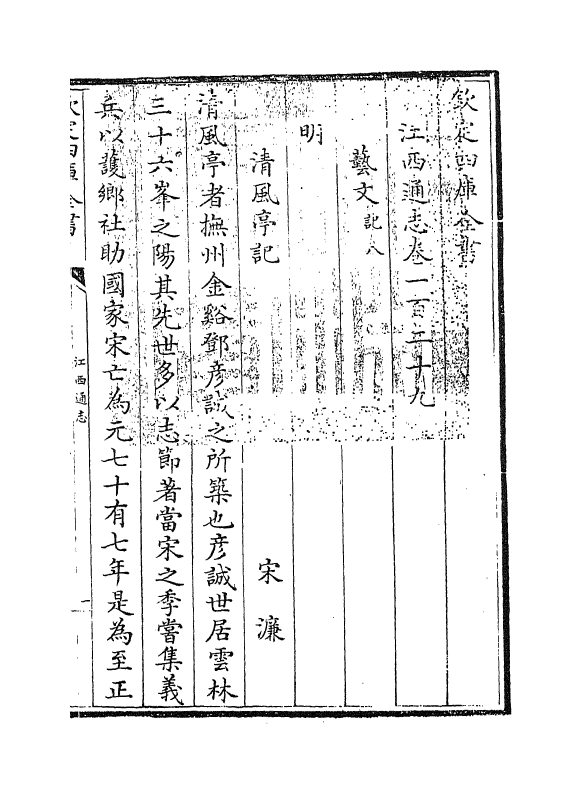 欽定四庫全書
江西通志卷一百二十九
藝文記八
明
清風亭記
宋濂
清風亭者撫州金谿鄧彦誠之所築也彦誠世居雲林
三十六峯之陽其先世多以志節著當宋之季嘗集義
兵以䕶鄉社助國家宋亡為元七十有七年是為至正
欽定四庫全書
江西通志
一